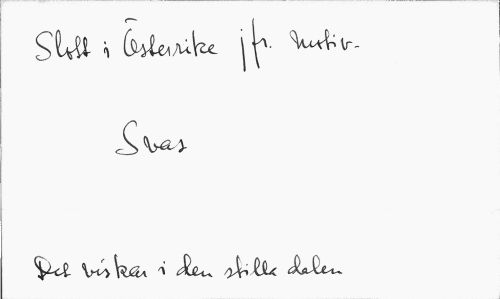 Slott i Österrike jfr. motiv.
Svar
Det viskar i den stilla dalen